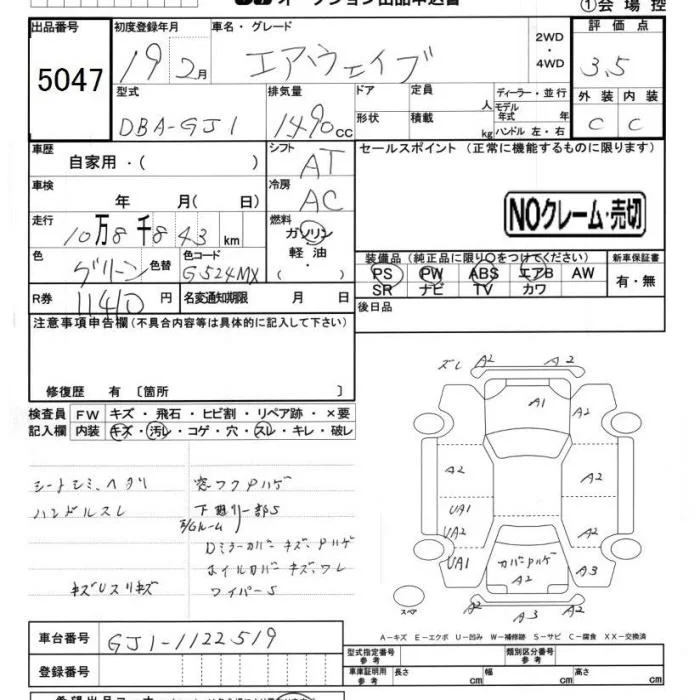 オークション出品申込書
①会場控
出品番号 初度登録年月 車名・グレード 評価点
5047 19 2月 エアウェイブ 2WD ・ 4WD 3.5
型式 排気量 ドア 定員 ディーラー・並行 外装 内装
DBA-GJ1 1490cc 形状 積載 人 kg モデル年式 年 ハンドル 左・右 C C
車歴 シフト セールスポイント(正常に機能するものに限ります)
自家用・( ) AT
車検 冷房
年 月( 日) AC NOクレーム・売切
走行 燃料
10万8千843km ガソリン
色 色替 色コード 軽・油 装備品(純正品に限り○をつけてください) 新車保証書
グリーン G524MX ( ) PS PW ABS エアB AW 有・無
SR ナビ TV カワ
R券 11410円 名変通知期限 月 日 後日品
注意事項申告欄(不具合内容等は具体的に記入して下さい)
修復歴 有 〔箇所 〕
検査員 FW キズ・飛石・ヒビ割・リペア跡・×要
記入欄 内装 キズ・汚レ・コゲ・穴・スレ・キレ・破レ
シートシミ、ヘタリ 窓フクPハゲ
ハンドルスレ 下廻リ一部S
E/Gルーム
Dミラーカバーキズ、Pハゲ
ホイルカバーキズ、ワレ
キズUスリキズ ワイパーS
スレ A2 A2
A1 A2
A2 A2
UA1
UA2 A2
UA1 カバーPハゲ A2 A3
A2 A3 A2
スペア
A-キズ E-エクボ U-凹み W-補修跡 S-サビ C-腐食 XX-交換済
車台番号 GJ1-1122519
型式指定番号 参考 類別区分番号 参考
登録番号 車庫証明用 参考 長さ cm 幅 cm 高さ cm